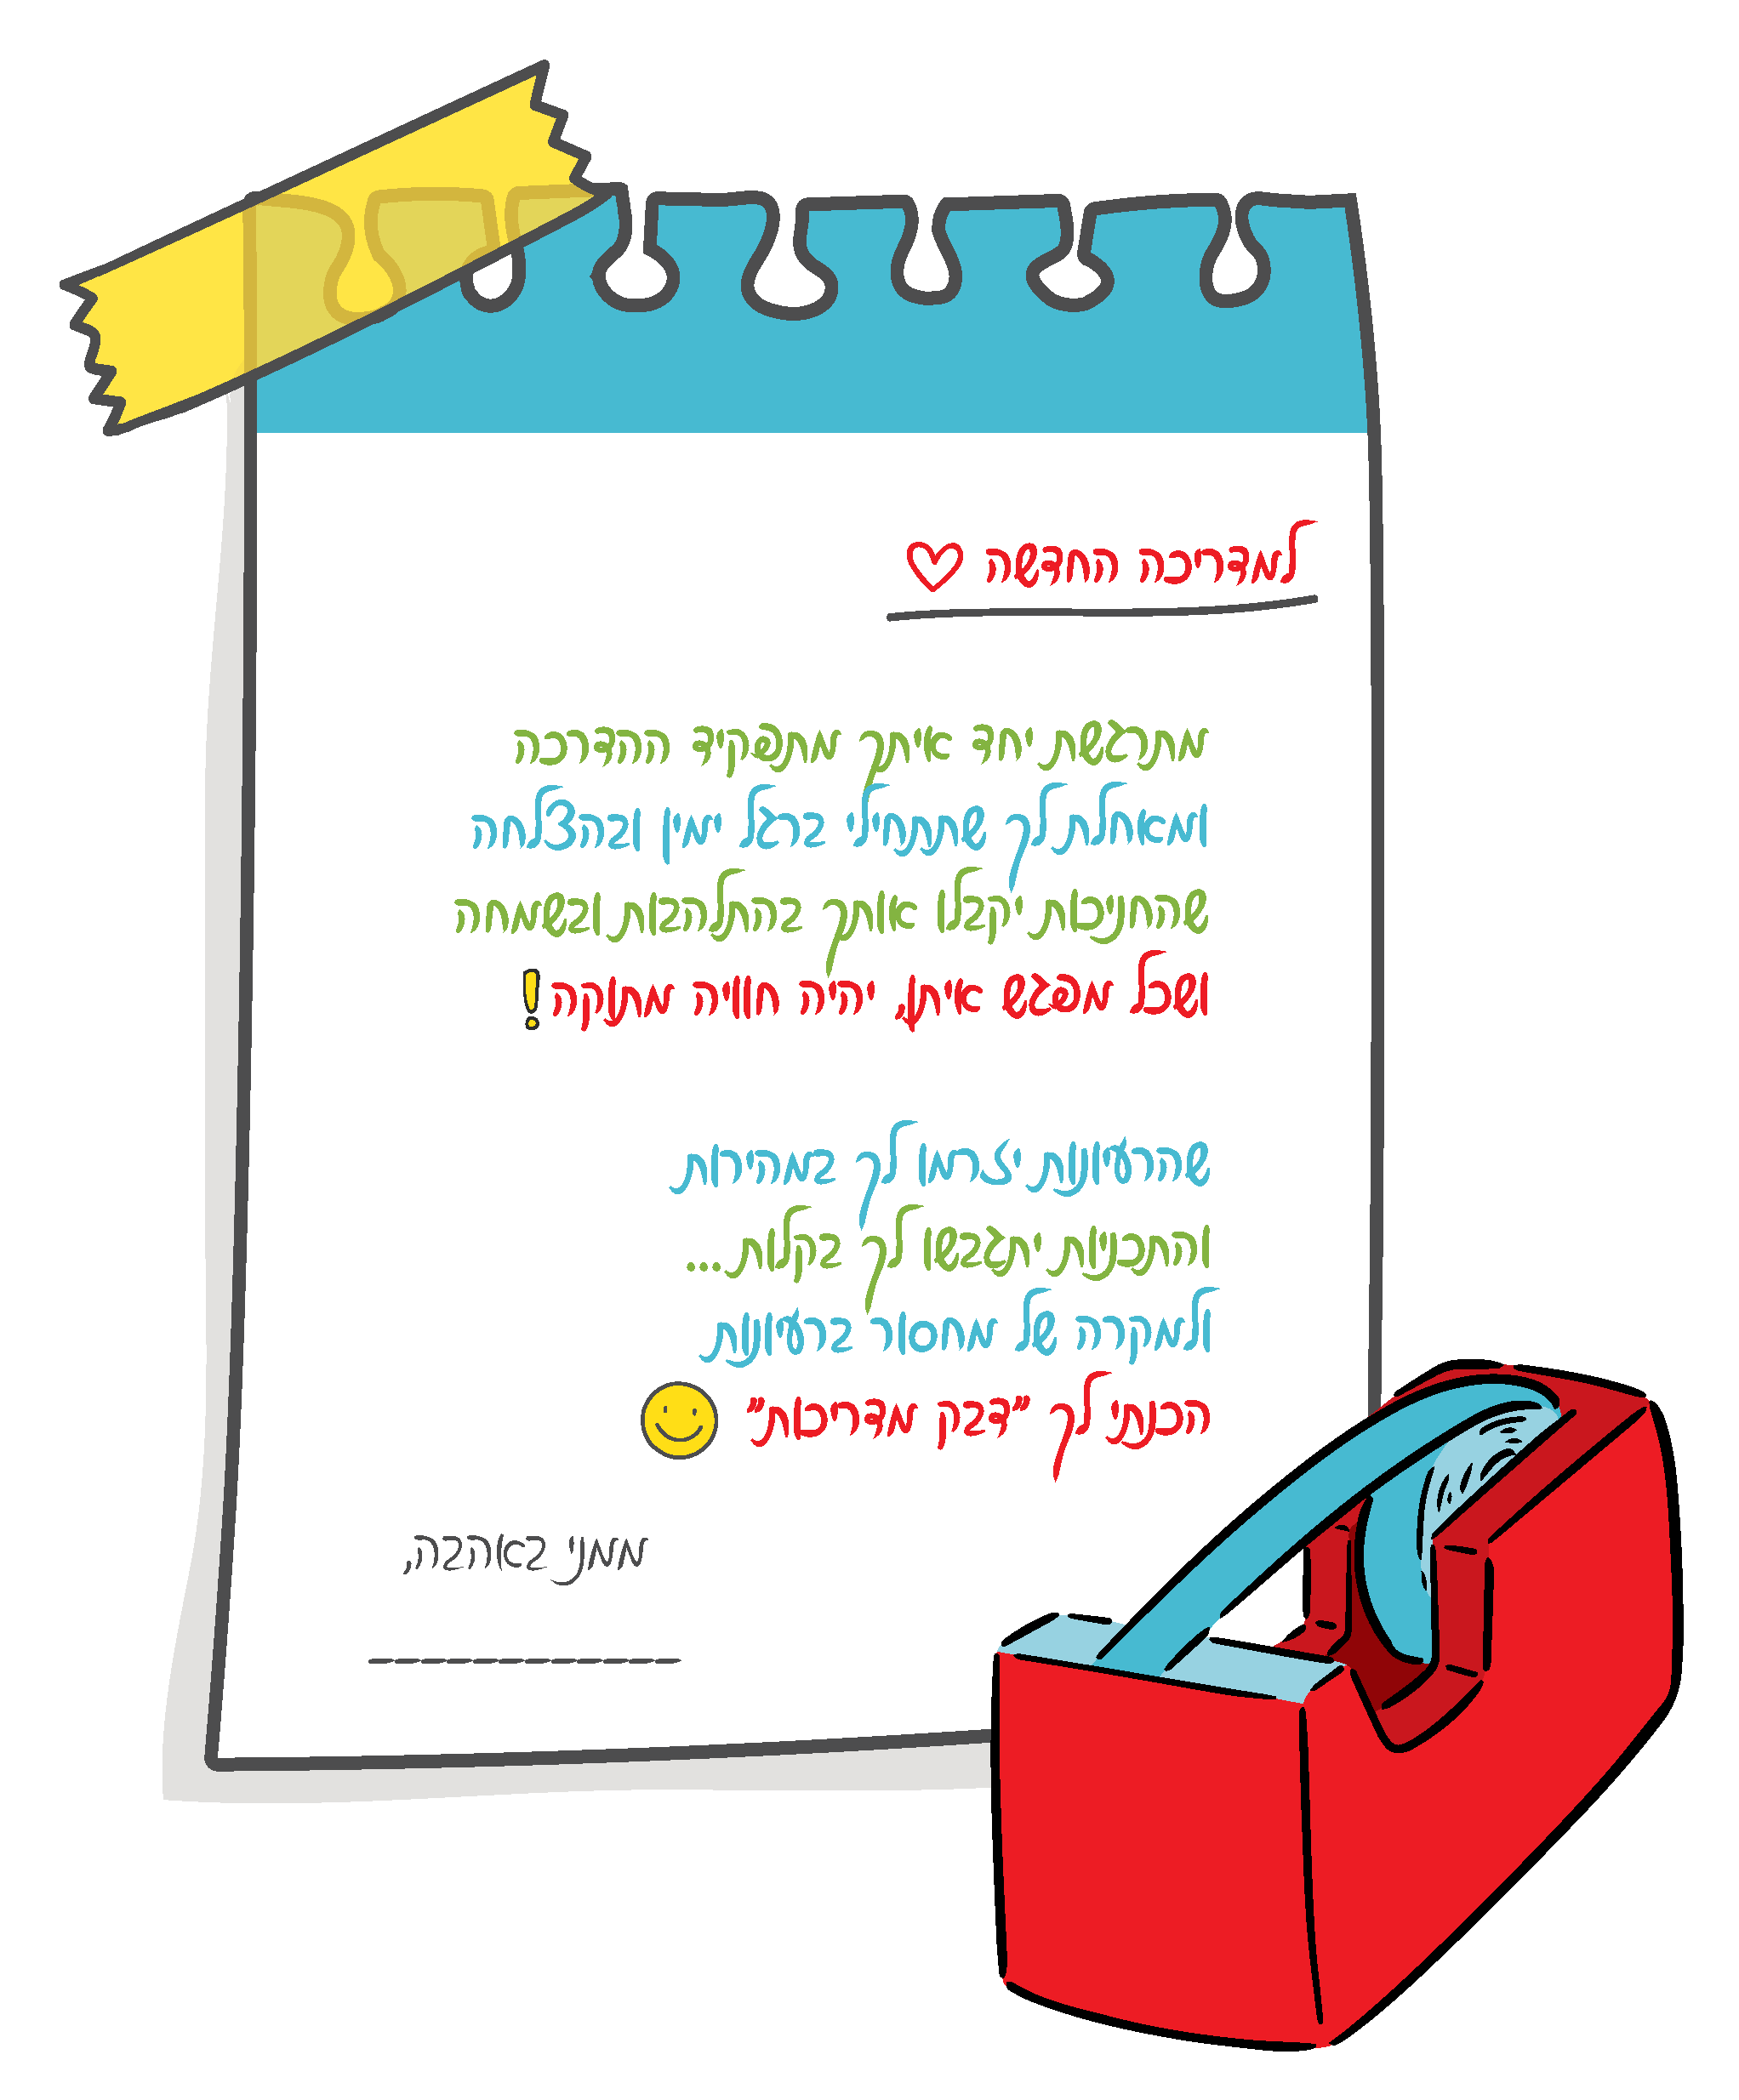 למדריכה החדשה
מתרגשת יחד איתך מתפקיד ההדרכה
ומאחלת לך שתתחילי ברגל ימין ובהצלחה
שהחניכות יקבלו אותך בהתלהבות ובשמחה
ושכל מפגש איתן, יהיה חוויה מתוקה!
שהרעיונות יזרמו לך במהירות
והתכניות יתגבשו לך בקלות...
ולמקרה של מחסור ברעיונות
הכנתי לך "דבק מדריכות"
ממני באהבה,